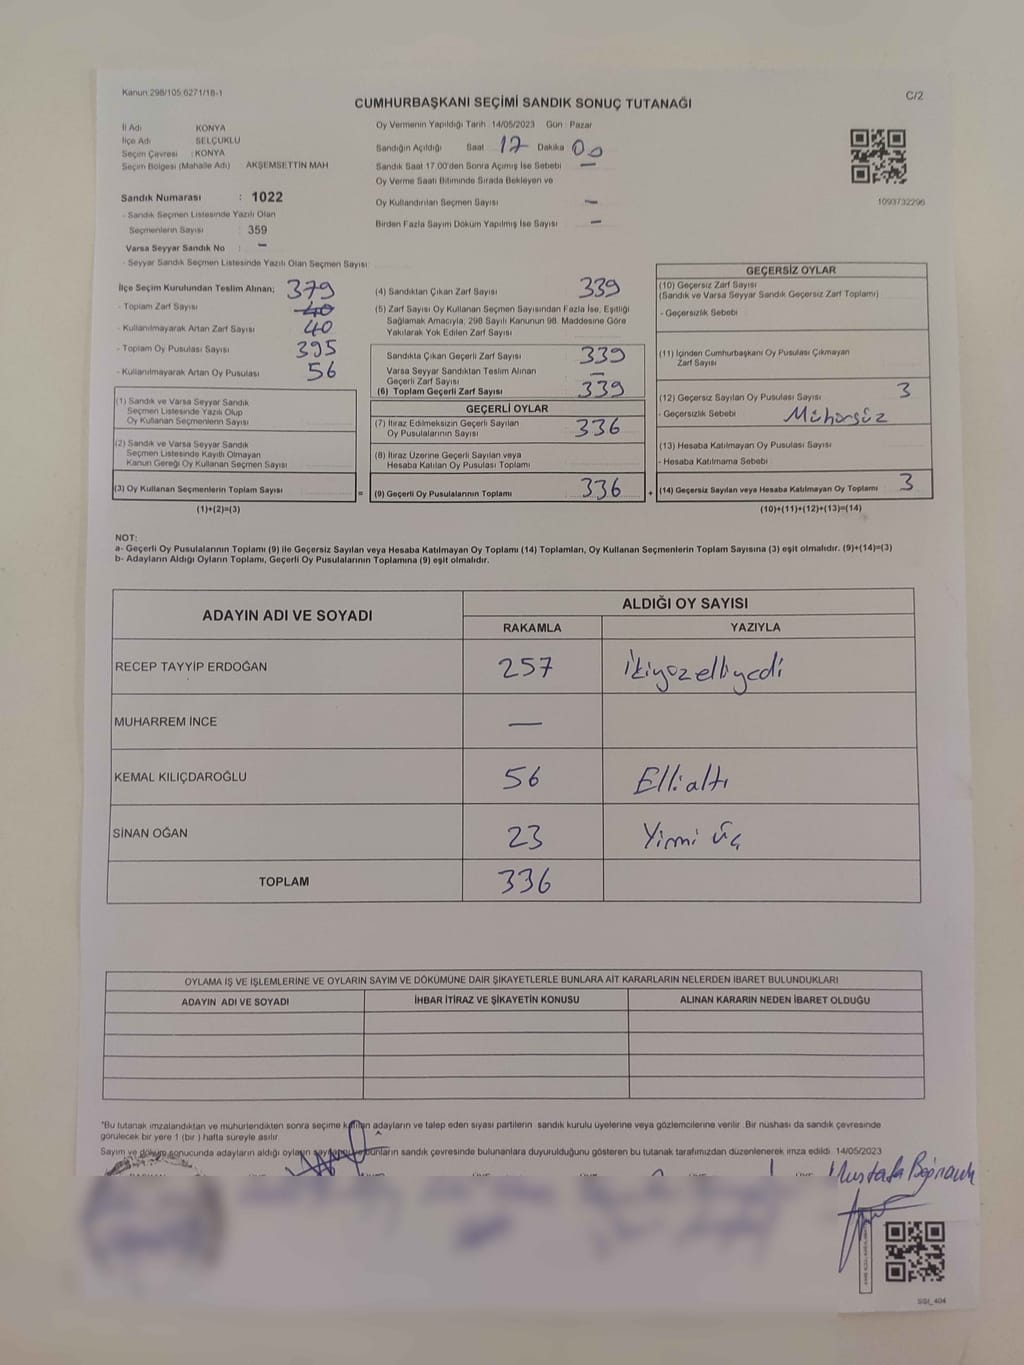 Kanun 298/105 6271/18-1
C/2
CUMHURBAŞKANI SEÇİMİ SANDIK SONUÇ TUTANAĞI
İl Adı KONYA
İlçe Adı SELÇUKLU
Seçim Çevresi : KONYA
Seçim Bölgesi (Mahalle Adı) AKŞEMSETTİN MAH
Sandık Numarası : 1022
- Sandık Seçmen Listesinde Yazılı Olan
Seçmenlerin Sayısı : 359
Varsa Seyyar Sandık No : -
- Seyyar Sandık Seçmen Listesinde Yazılı Olan Seçmen Sayısı:
Oy Vermenin Yapıldığı Tarih : 14/05/2023 Gün : Pazar
Sandığın Açıldığı Saat 17 Dakika 00
Sandık Saat 17.00'den Sonra Açımış İse Sebebi -
Oy Verme Saati Bitiminde Sırada Bekleyen ve
Oy Kullandırılan Seçmen Sayısı -
Birden Fazla Sayım Döküm Yapılmış İse Sayısı -
1093732296
İlçe Seçim Kurulundan Teslim Alınan; 379
- Toplam Zarf Sayısı 40
- Kullanılmayarak Artan Zarf Sayısı 40
- Toplam Oy Pusulası Sayısı 395
- Kullanılmayarak Artan Oy Pusulası 56
(1) Sandık ve Varsa Seyyar Sandık
Seçmen Listesinde Yazılı Olup
Oy Kullanan Seçmenlerin Sayısı
(2) Sandık ve Varsa Seyyar Sandık
Seçmen Listesinde Kayıtlı Olmayan
Kanun Gereği Oy Kullanan Seçmen Sayısı
(3) Oy Kullanan Seçmenlerin Toplam Sayısı =
(1)+(2)=(3)
(4) Sandıktan Çıkan Zarf Sayısı 339
(5) Zarf Sayısı Oy Kullanan Seçmen Sayısından Fazla İse, Eşitliği
Sağlamak Amacıyla, 298 Sayılı Kanunun 98. Maddesine Göre
Yakılarak Yok Edilen Zarf Sayısı
Sandıkta Çıkan Geçerli Zarf Sayısı 339
Varsa Seyyar Sandıktan Teslim Alınan
Geçerli Zarf Sayısı -
(6) Toplam Geçerli Zarf Sayısı 339
GEÇERLİ OYLAR
(7) İtiraz Edilmeksizin Geçerli Sayılan
Oy Pusulalarının Sayısı 336
(8) İtiraz Üzerine Geçerli Sayılan veya
Hesaba Katılan Oy Pusulası Toplamı
(9) Geçerli Oy Pusulalarının Toplamı 336 +
GEÇERSİZ OYLAR
(10) Geçersiz Zarf Sayısı
(Sandık ve Varsa Seyyar Sandık Geçersiz Zarf Toplamı)
- Geçersizlik Sebebi
(11) İçinden Cumhurbaşkanı Oy Pusulası Çıkmayan
Zarf Sayısı
(12) Geçersiz Sayılan Oy Pusulası Sayısı 3
- Geçersizlik Sebebi Mühürsüz
(13) Hesaba Katılmayan Oy Pusulası Sayısı
- Hesaba Katılmama Sebebi
(14) Geçersiz Sayılan veya Hesaba Katılmayan Oy Toplamı 3
(10)+(11)+(12)+(13)=(14)
NOT:
a- Geçerli Oy Pusulalarının Toplamı (9) ile Geçersiz Sayılan veya Hesaba Katılmayan Oy Toplamı (14) Toplamları, Oy Kullanan Seçmenlerin Toplam Sayısına (3) eşit olmalıdır. (9)+(14)=(3)
b- Adayların Aldığı Oyların Toplamı, Geçerli Oy Pusulalarının Toplamına (9) eşit olmalıdır.
ADAYIN ADI VE SOYADI ALDIĞI OY SAYISI
RAKAMLA YAZIYLA
RECEP TAYYİP ERDOĞAN 257 İkiyüzelliyedi
MUHARREM İNCE —
KEMAL KILIÇDAROĞLU 56 Elli altı
SİNAN OĞAN 23 Yirmi üç
TOPLAM 336
OYLAMA İŞ VE İŞLEMLERİNE VE OYLARIN SAYIM VE DÖKÜMÜNE DAİR ŞİKAYETLERLE BUNLARA AİT KARARLARIN NELERDEN İBARET BULUNDUKLARI
ADAYIN ADI VE SOYADI İHBAR İTİRAZ VE ŞİKAYETİN KONUSU ALINAN KARARIN NEDEN İBARET OLDUĞU
*Bu tutanak imzalandıktan ve mühürlendikten sonra seçime katılan adayların ve talep eden siyasi partilerin sandık kurulu üyelerine veya gözlemcilerine verilir. Bir nüshası da sandık çevresinde
görülecek bir yere 1 (bir ) hafta süreyle asılır.
Sayım ve döküm sonucunda adayların aldığı oyların sayısını ve bunların sandık çevresinde bulunanlara duyurulduğunu gösteren bu tutanak tarafımızdan düzenlenerek imza edildi. 14/05/2023
Mustafa
SSI_404